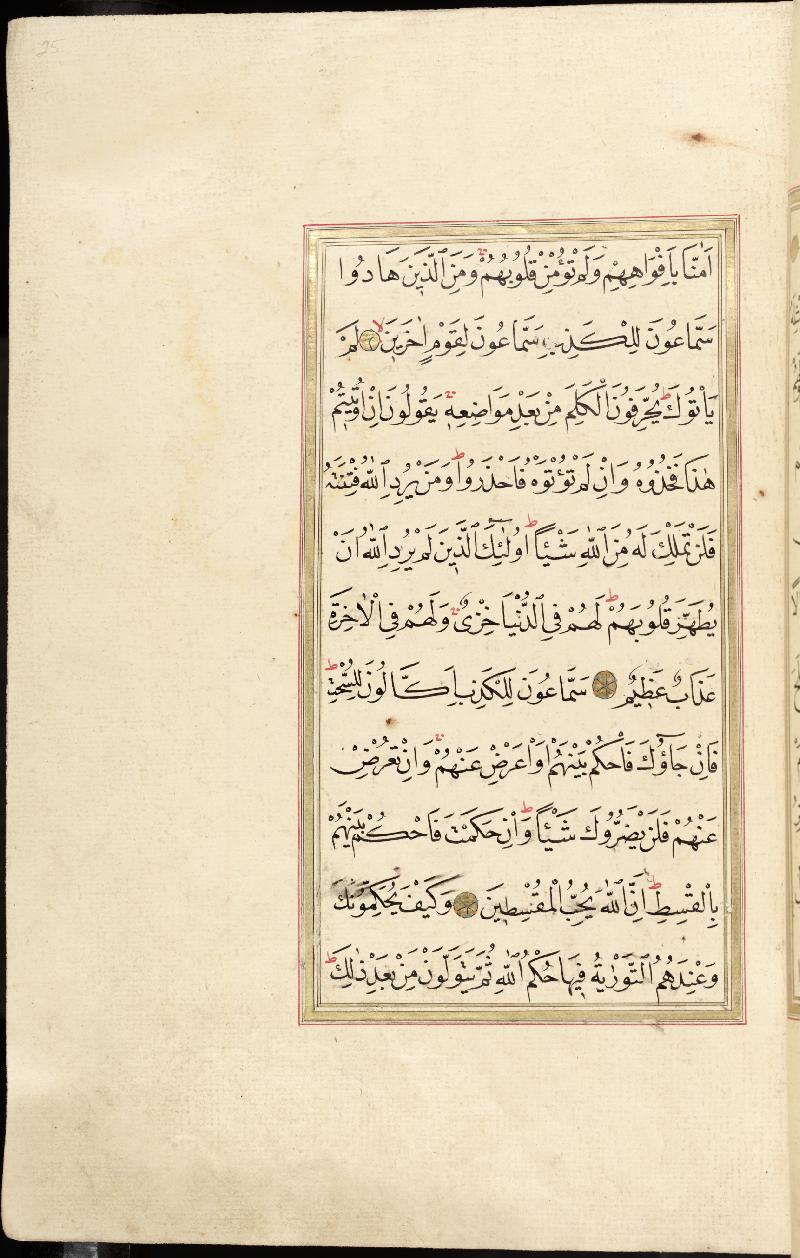 اٰمَنَّا بِاَفْوَاهِهِمْ وَلَمْ تُؤْمِنْ قُلُوبُهُمْ وَمِنَ الَّذِينَ هَادُوا
سَمَّاعُونَ لِلْكَذِبِ سَمَّاعُونَ لِقَوْمٍ اٰخَرِينَ لَمْ
يَأْتُوكَ يُحَرِّفُونَ الْكَلِمَ مِنْ بَعْدِ مَوَاضِعِهِ يَقُولُونَ اِنْ اُوتِيتُمْ
هٰذَا فَخُذُوهُ وَاِنْ لَمْ تُؤْتَوْهُ فَاحْذَرُوا وَمَنْ يُرِدِ اللّٰهُ فِتْنَتَهُ
فَلَنْ تَمْلِكَ لَهُ مِنَ اللّٰهِ شَيْئًا اُولٰئِكَ الَّذِينَ لَمْ يُرِدِ اللّٰهُ اَنْ
يُطَهِّرَ قُلُوبَهُمْ لَهُمْ فِي الدُّنْيَا خِزْىٌ وَلَهُمْ فِي الْاٰخِرَةِ
عَذَابٌ عَظِيمٌ سَمَّاعُونَ لِلْكَذِبِ اَكَّالُونَ لِلسُّحْتِ
فَاِنْ جَاؤُكَ فَاحْكُمْ بَيْنَهُمْ اَوْ اَعْرِضْ عَنْهُمْ وَاِنْ تُعْرِضْ
عَنْهُمْ فَلَنْ يَضُرُّوكَ شَيْئًا وَاِنْ حَكَمْتَ فَاحْكُمْ بَيْنَهُمْ
بِالْقِسْطِ اِنَّ اللّٰهَ يُحِبُّ الْمُقْسِطِينَ وَكَيْفَ يُحَكِّمُونَكَ
وَعِنْدَهُمُ التَّوْرٰيةُ فِيهَا حُكْمُ اللّٰهِ ثُمَّ يَتَوَلَّوْنَ مِنْ بَعْدِ ذٰلِكَ